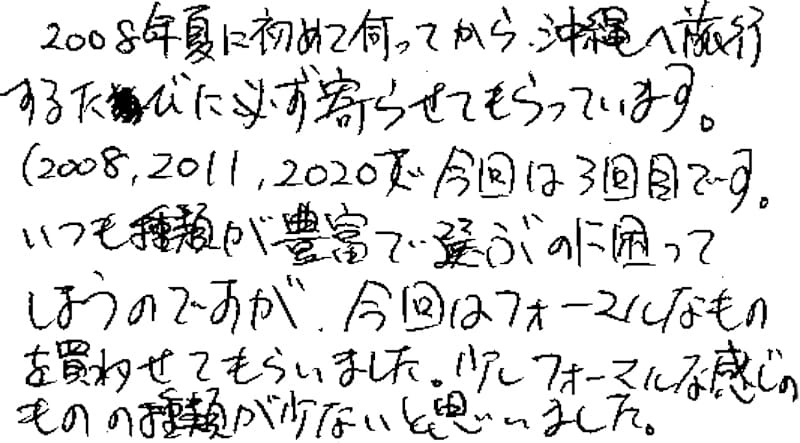 2008年夏に初めて伺ってから、沖縄へ旅行
するたびに必ず寄らせてもらっています。
(2008, 2011, 2020で今回は3回目です。
いつも種類が豊富で選ぶのに困って
しまうのですが、今回はフォーマルなもの
を買わせてもらいました。少しフォーマルな感じの
ものの種類が少ないと思いました。